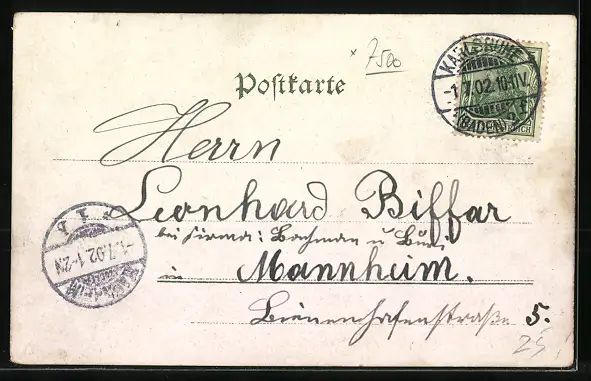 7500
Postkarte
KARLSRUHE
-1.7.02.10-11V.
(BADEN)
REICH
Herrn
Leonhard Biffar
bei Firma: Bachman u
in Mannheim.
5.
-1.7.02.1-2N
25